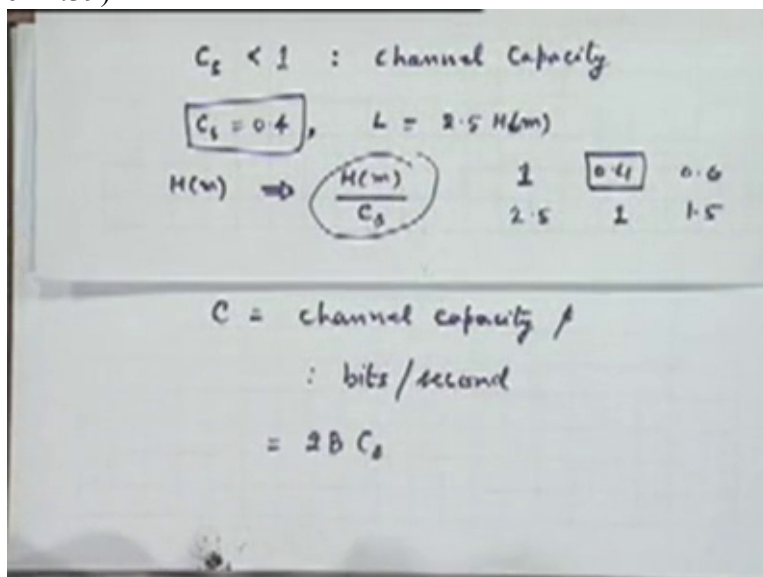 C_s < 1 : channel capacity
C_s = 0.4, L = 2.5 H(m)
H(m) ⇒ H(m)/C_s 1 0.4 0.6
2.5 1 1.5
C = channel capacity /
: bits/second
= 2B C_s